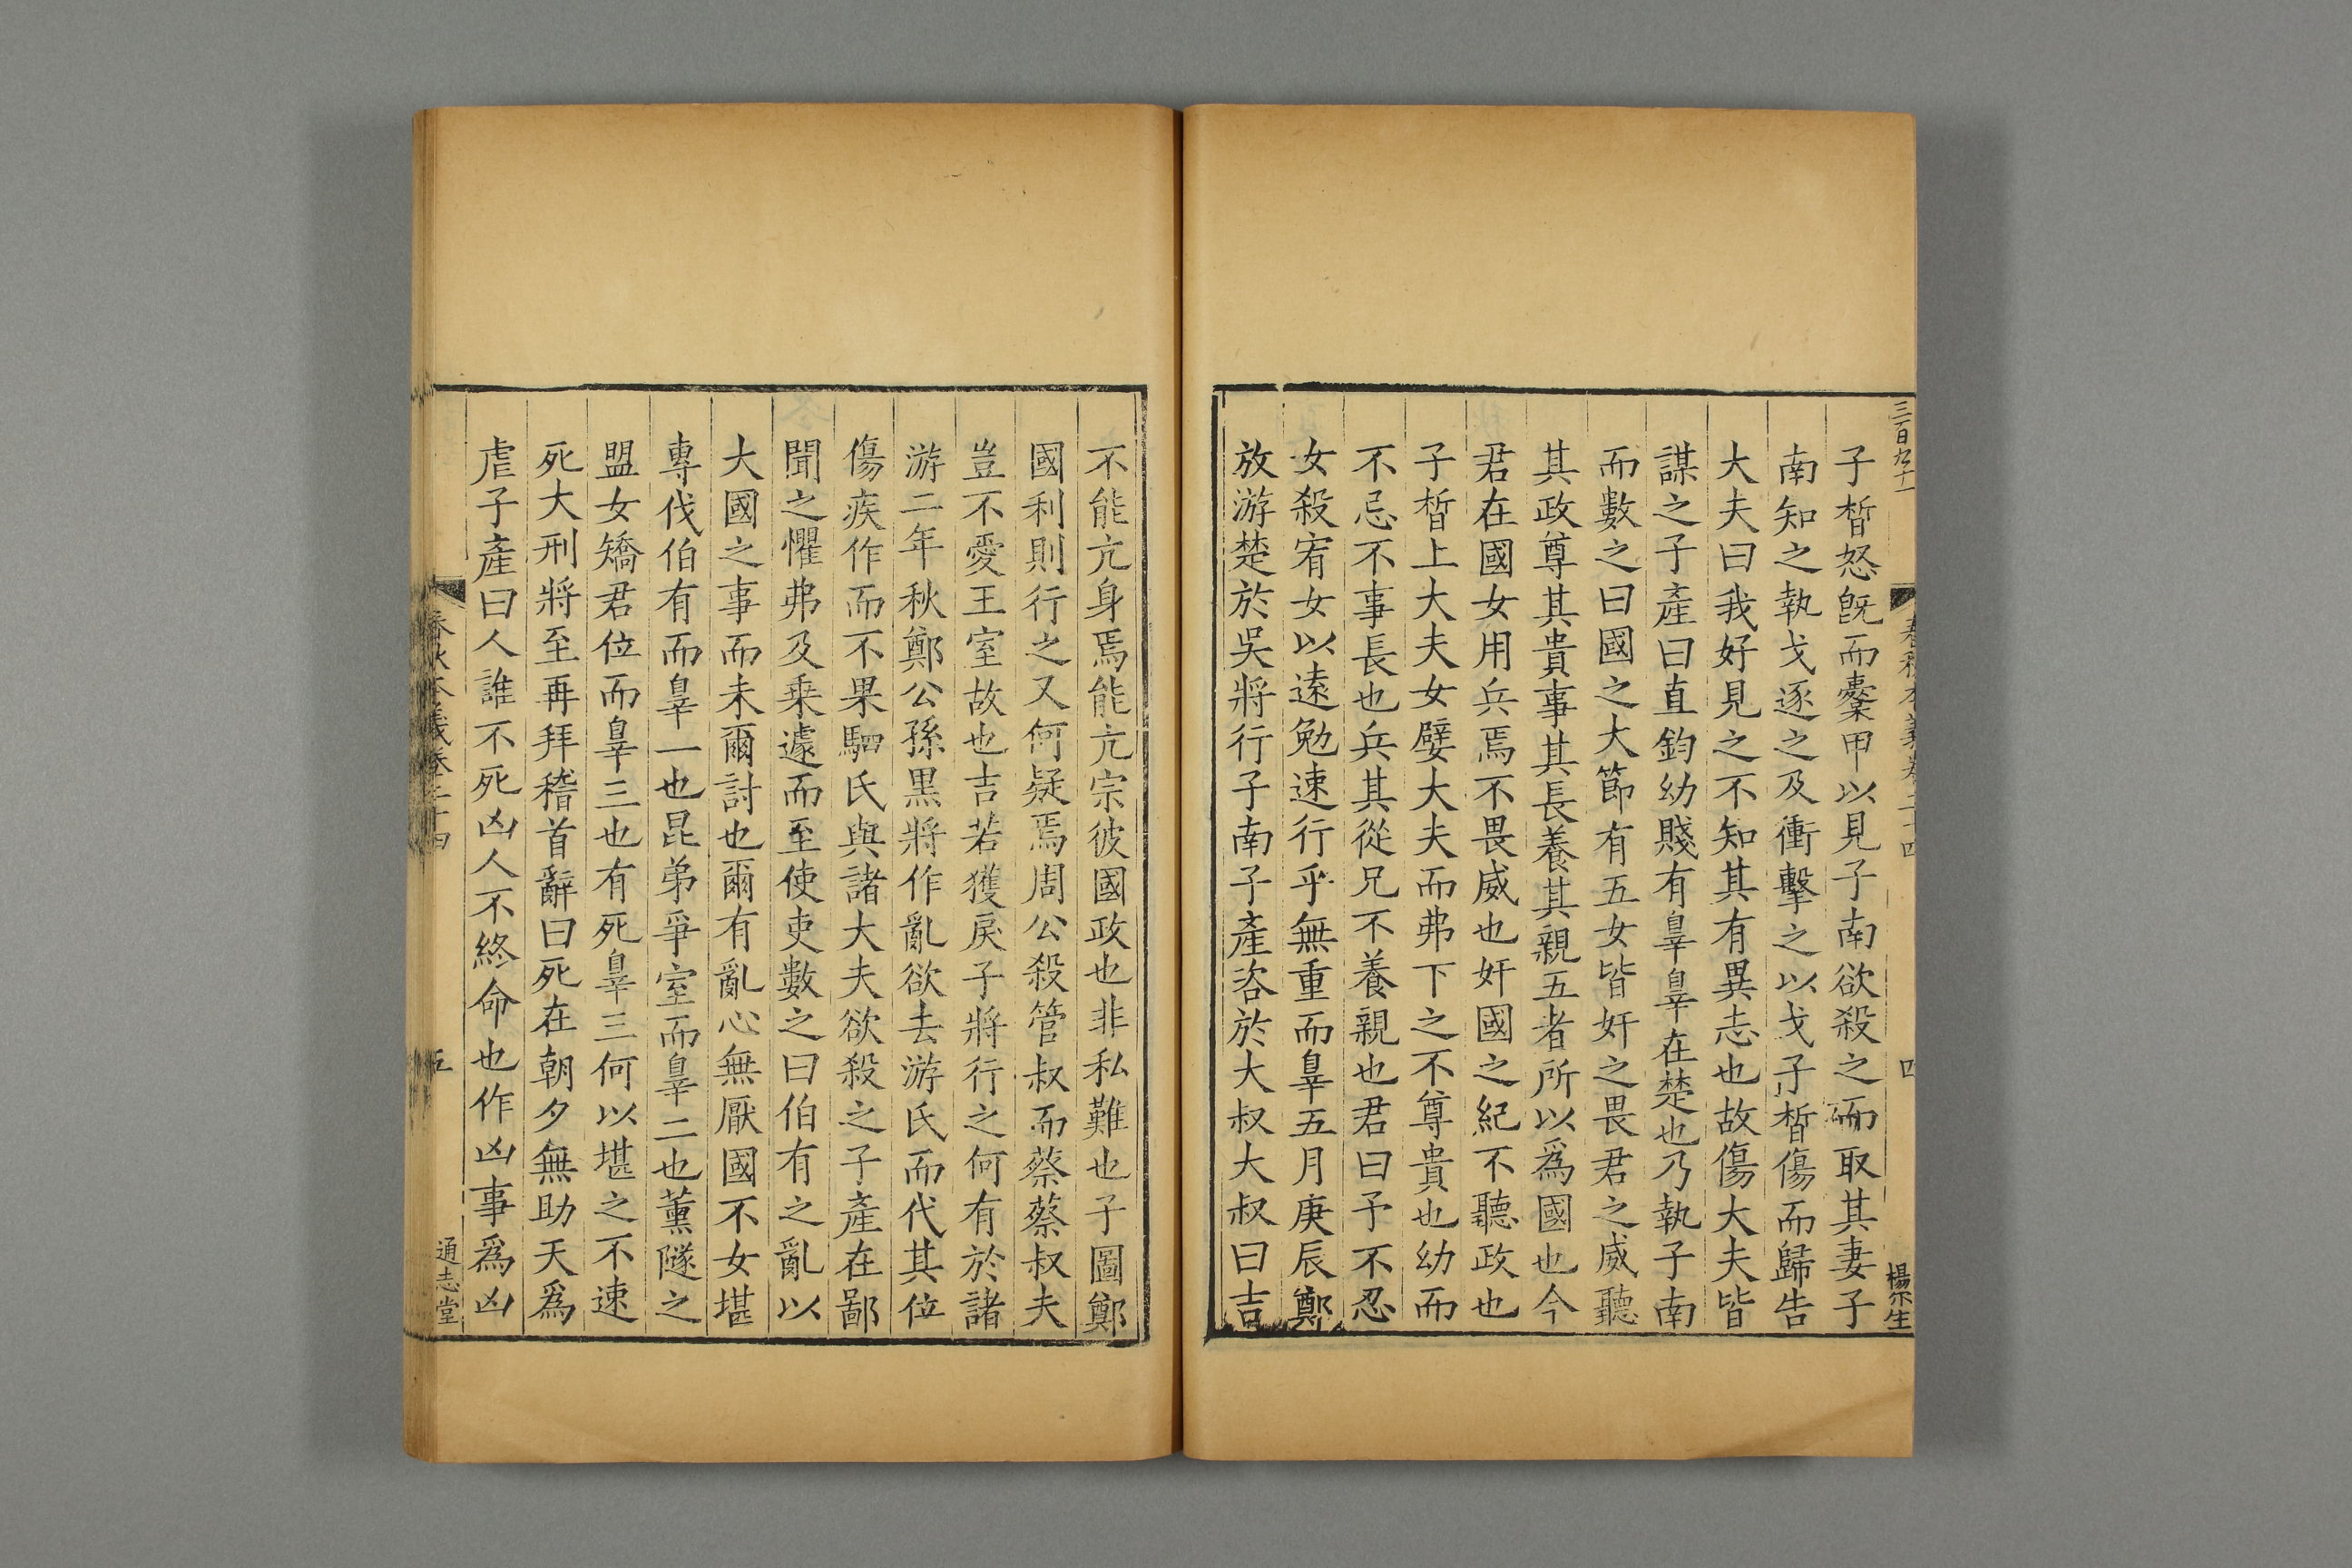 三百九十一
春秋本義卷二十四
四
楊宗生
子晳怒旣而櫜甲以見子南欲殺之而取其妻子
南知之執戈逐之及衝擊之以戈子晳傷而歸告
大夫曰我好見之不知其有異志也故傷大夫皆
謀之子產曰直鈞幼賤有辠辠在楚也乃執子南
而數之曰國之大節有五女皆奸之畏君之威聽
其政尊其貴事其長養其親五者所以爲國也今
君在國女用兵焉不畏威也奸國之紀不聽政也
子晳上大夫女嬖大夫而弗下之不尊貴也幼而
不忌不事長也兵其從兄不養親也君曰予不忍
女殺宥女以遠勉速行乎無重而辠五月庚辰鄭
放游楚於吳將行子南子產咨於大叔大叔曰吉
不能亢身焉能亢宗彼國政也非私難也子圖鄭
國利則行之又何疑焉周公殺管叔而蔡蔡叔夫
豈不愛王室故也吉若獲戾子將行之何有於諸
游二年秋鄭公孫黑將作亂欲去游氏而代其位
傷疾作而不果駟氏與諸大夫欲殺之子產在鄙
聞之懼弗及乗遽而至使吏數之曰伯有之亂以
大國之事而未爾討也爾有亂心無厭國不女堪
專伐伯有而辠一也昆弟爭室而辠二也薰隧之
盟女矯君位而辠三也有死辠三何以堪之不速
死大刑將至再拜稽首辭曰死在朝夕無助天爲
虐子產曰人誰不死凶人不終命也作凶事爲凶
春秋本義卷二十四
五
通志堂